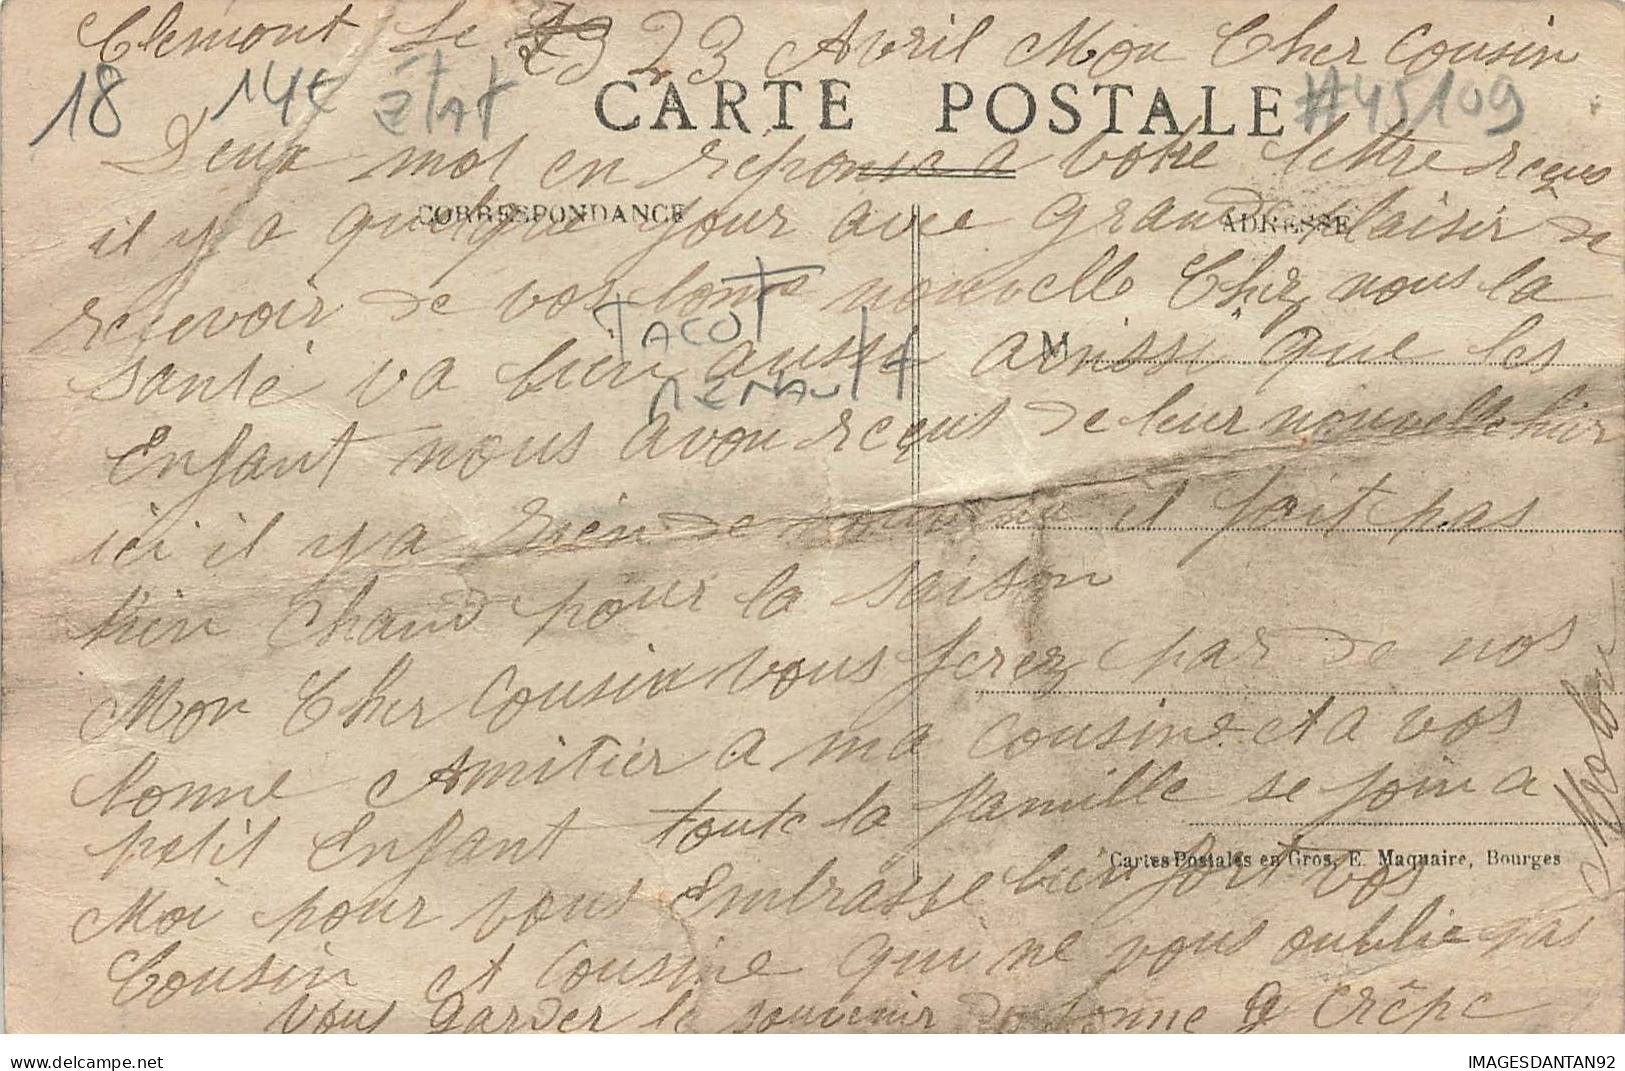 Clemont le 23 Avril Mon Cher Cousin
18 14€ ETAT #45109
CARTE POSTALE
Deux mot en reponse a votre lettre reçus
CORRESPONDANCE
ADRESSE
il y a quelque jour avec grand plaisir de
recevoir de vos bonne nouvelle Cher nous la
TACOT
RENAULT
M
santé va bien aussi ainssi que les
Enfant nous avon reçus de leur nouvelle hier
ici il y a rien de nouveau il fait pas
bien chaud pour la saison
Mon Cher Cousin vous ferez par de nos
bonne Amitier a ma cousine et a vos
petit Enfant toute la famille se join a
Cartes Postales en Gros, E. Maquaire, Bourges
Moi pour vous Embrasse bien fort vos
Cousin et Cousine qui ne vous oublie pas
Vous garder le souvenir de bonne Crêpe
delcampe.net
IMAGESDANTAN92